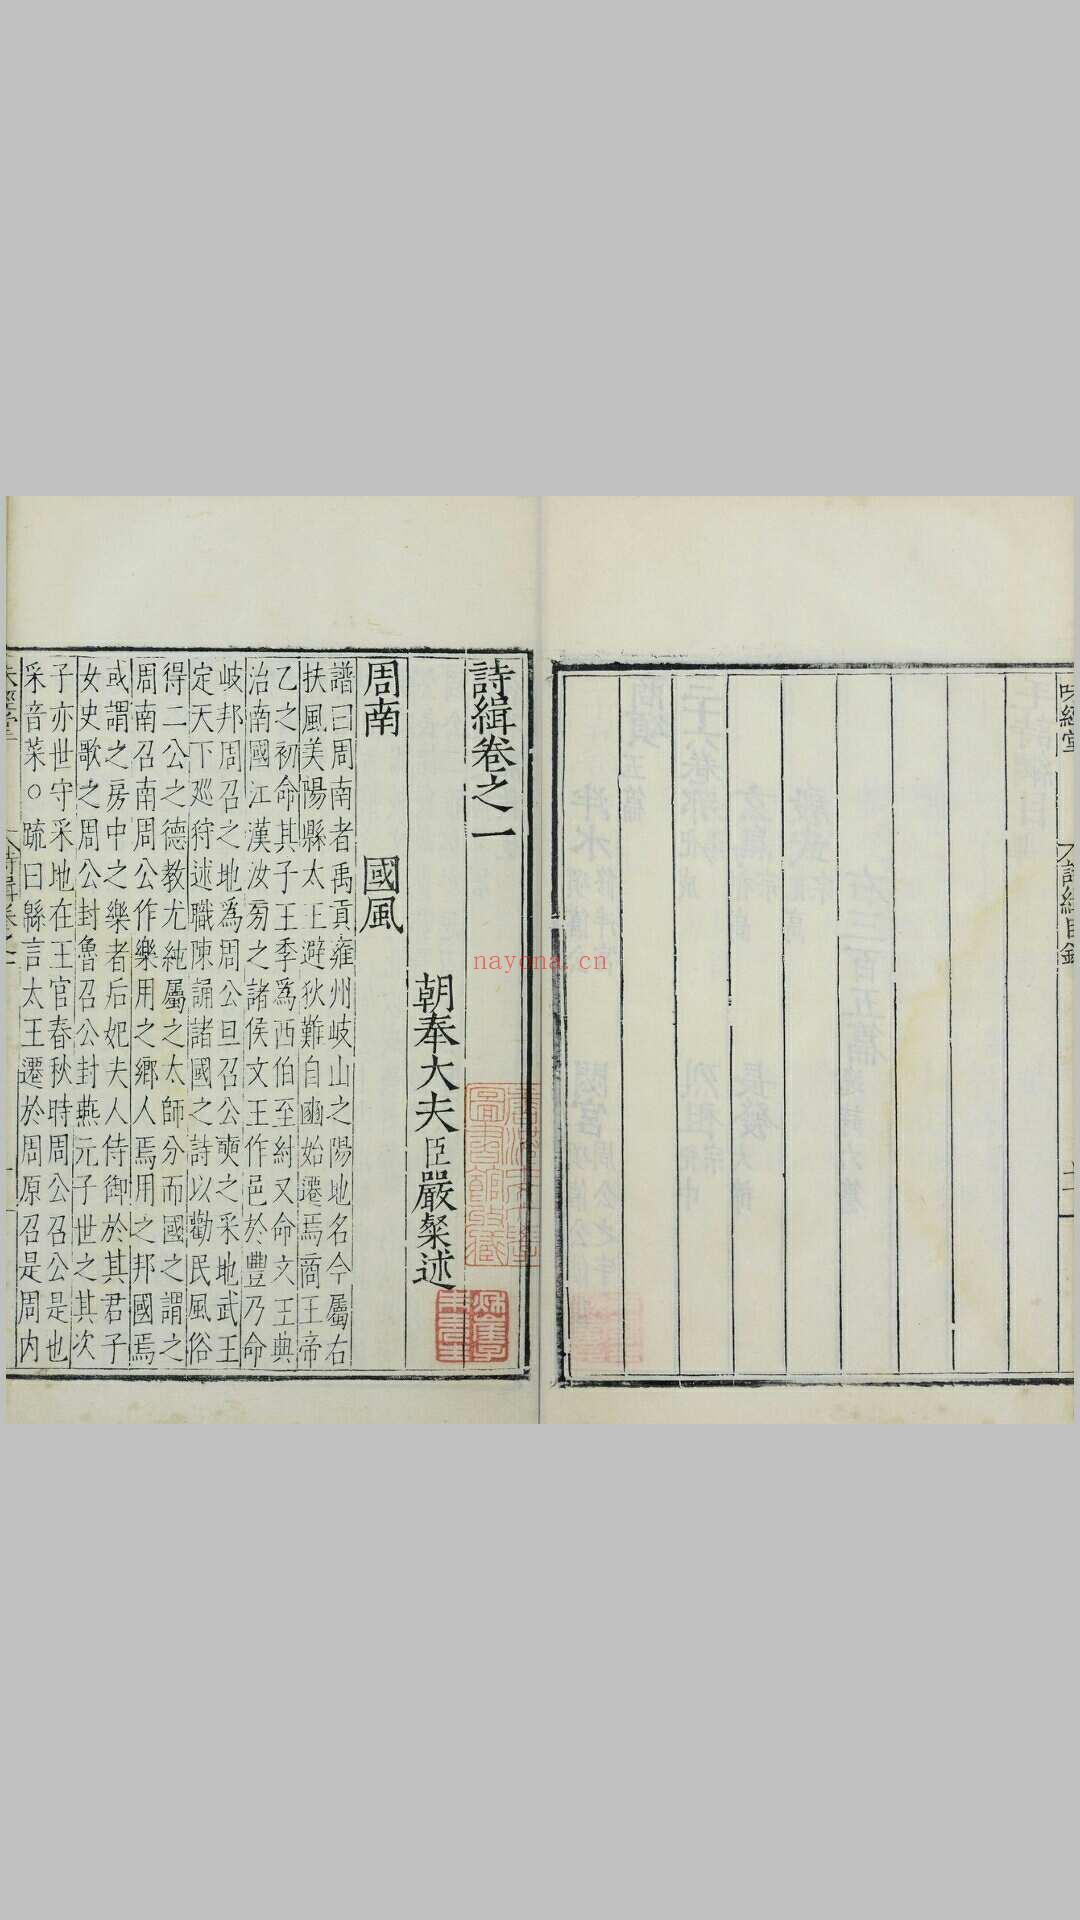 味經堂
詩緝目錄
詩緝卷之一
朝奉大夫臣嚴粲述
周南　國風
譜曰周南者禹貢雍州岐山之陽地名今屬右
扶風美陽縣太王避狄難自豳始遷焉商王帝
乙之初命其子王季爲西伯至紂又命文王典
治南國江漢汝旁之諸侯文王作邑於豐乃命
岐邦周召之地爲周公旦召公奭之采地武王
定天下廵狩述職陳誦諸國之詩以勸民風俗
得二公之德教尤純屬之太師分而國之謂之
周南召南周公作樂用之鄉人焉用之邦國焉
或謂之房中之樂者后妃夫人侍御於其君子
女史歌之周公封魯召公封燕元子世之其次
子亦世守采地在王官春秋時周公召公是也
采音菜○疏曰緜言太王遷於周原召是周内
味經堂
詩緝卷之一
nayona.cn